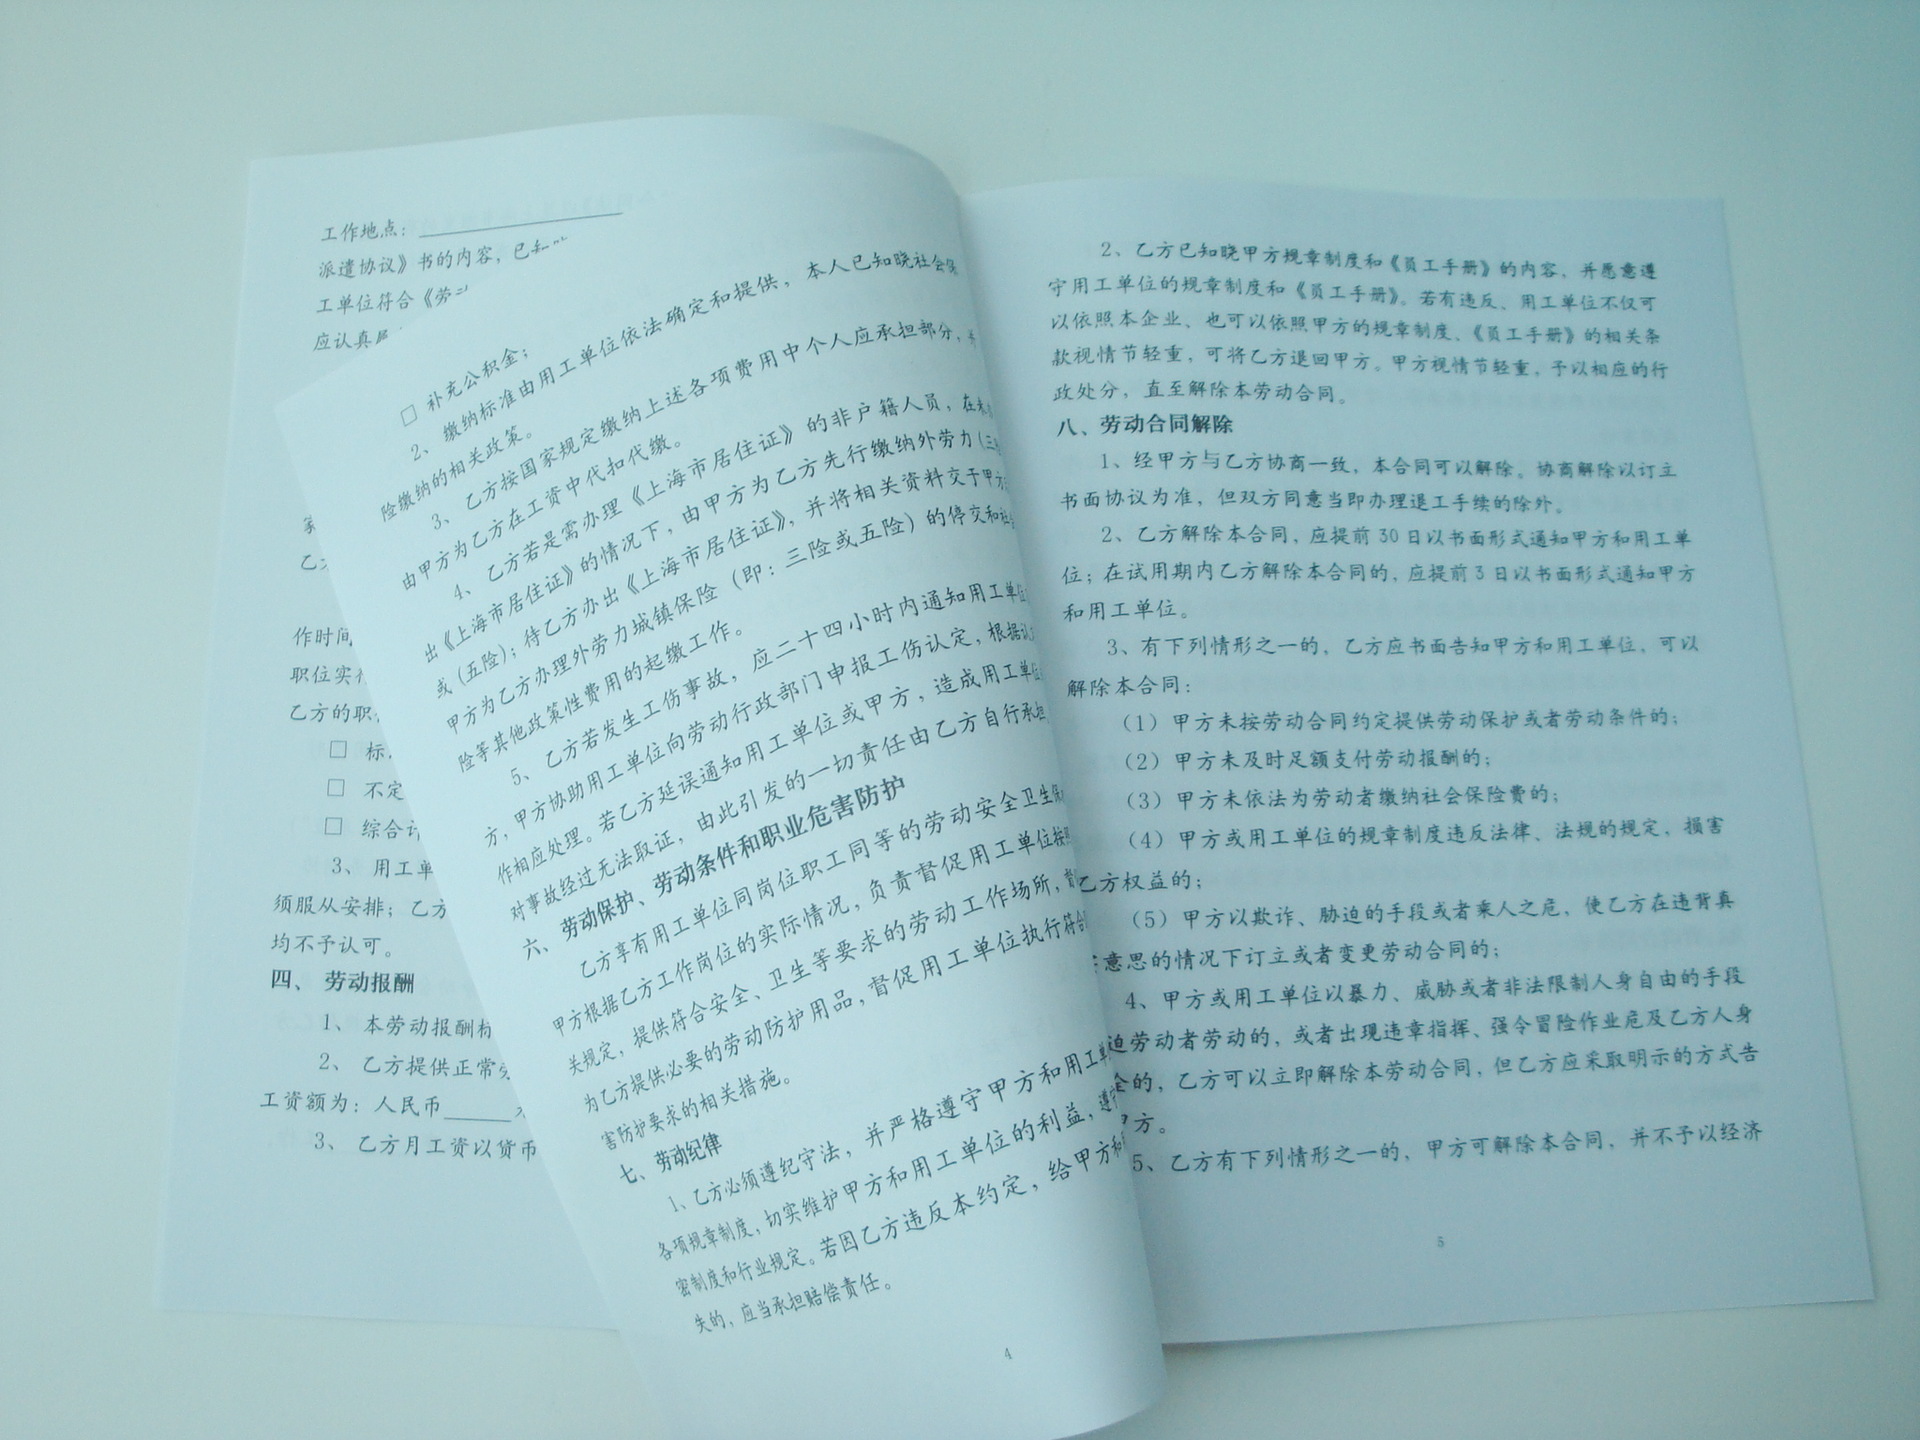 工作地点：
派遣协议》书的内容，已知
工单位符合《劳
应认真
乙
作时间
职位实行
乙方的职
□ 标
□ 不定
□ 综合
3、用工单
须服从安排；乙方
均不予认可。
四、 劳动报酬
1、 本劳动报酬标
2、 乙方提供正常
工资额为：人民币______
3、 乙方月工资以货币
□ 补充公积金；
2、 缴纳标准由用工单位依法确定和提供，本人已知晓社会保
险缴纳的相关政策。
3、 乙方按国家规定缴纳上述各项费用中个人应承担部分，并
由甲方为乙方在工资中代扣代缴。
4、 乙方若是需办理《上海市居住证》的非户籍人员，在未
出《上海市居住证》的情况下，由甲方为乙方先行缴纳外劳力（三险
或（五险）；待乙方办出《上海市居住证》，并将相关资料交于甲方
甲方为乙方办理外劳力城镇保险（即：三险或五险）的停交和社
险等其他政策性费用的起缴工作。
5、 乙方若发生工伤事故，应二十四小时内通知用工单位
方，甲方协助用工单位向劳动行政部门申报工伤认定，根据认
作相应处理。若乙方延误通知用工单位或甲方，造成用工单位
对事故经过无法取证，由此引发的一切责任由乙方自行承担
六、 劳动保护、劳动条件和职业危害防护
乙方享有用工单位同岗位职工同等的劳动安全卫生保
甲方根据乙方工作岗位的实际情况，负责督促用工单位按照
关规定，提供符合安全、卫生等要求的劳动工作场所，督
为乙方提供必要的劳动防护用品，督促用工单位执行符合
害防护要求的相关措施。
七、 劳动纪律
1、乙方必须遵纪守法，并严格遵守甲方和用工单
各项规章制度，切实维护甲方和用工单位的利益，遵守
密制度和行业规定。若因乙方违反本约定，给甲方和
失的，应当承担赔偿责任。
4
2、乙方已知晓甲方规章制度和《员工手册》的内容，并愿意遵
守用工单位的规章制度和《员工手册》。若有违反、用工单位不仅可
以依照本企业、也可以依照甲方的规章制度、《员工手册》的相关条
款视情节轻重，可将乙方退回甲方。甲方视情节轻重，予以相应的行
政处分，直至解除本劳动合同。
八、劳动合同解除
1、经甲方与乙方协商一致，本合同可以解除。协商解除以订立
书面协议为准，但双方同意当即办理退工手续的除外。
2、乙方解除本合同，应提前30日以书面形式通知甲方和用工单
位；在试用期内乙方解除本合同的，应提前3日以书面形式通知甲方
和用工单位。
3、有下列情形之一的，乙方应书面告知甲方和用工单位，可以
解除本合同：
（1）甲方未按劳动合同约定提供劳动保护或者劳动条件的；
（2）甲方未及时足额支付劳动报酬的；
（3）甲方未依法为劳动者缴纳社会保险费的；
（4）甲方或用工单位的规章制度违反法律、法规的规定，损害
乙方权益的；
（5）甲方以欺诈、胁迫的手段或者乘人之危，使乙方在违背真
意思的情况下订立或者变更劳动合同的；
4、甲方或用工单位以暴力、威胁或者非法限制人身自由的手段
迫劳动者劳动的，或者出现违章指挥、强令冒险作业危及乙方人身
全的，乙方可以立即解除本劳动合同，但乙方应采取明示的方式告
甲方。
5、乙方有下列情形之一的，甲方可解除本合同，并不予以经济
5